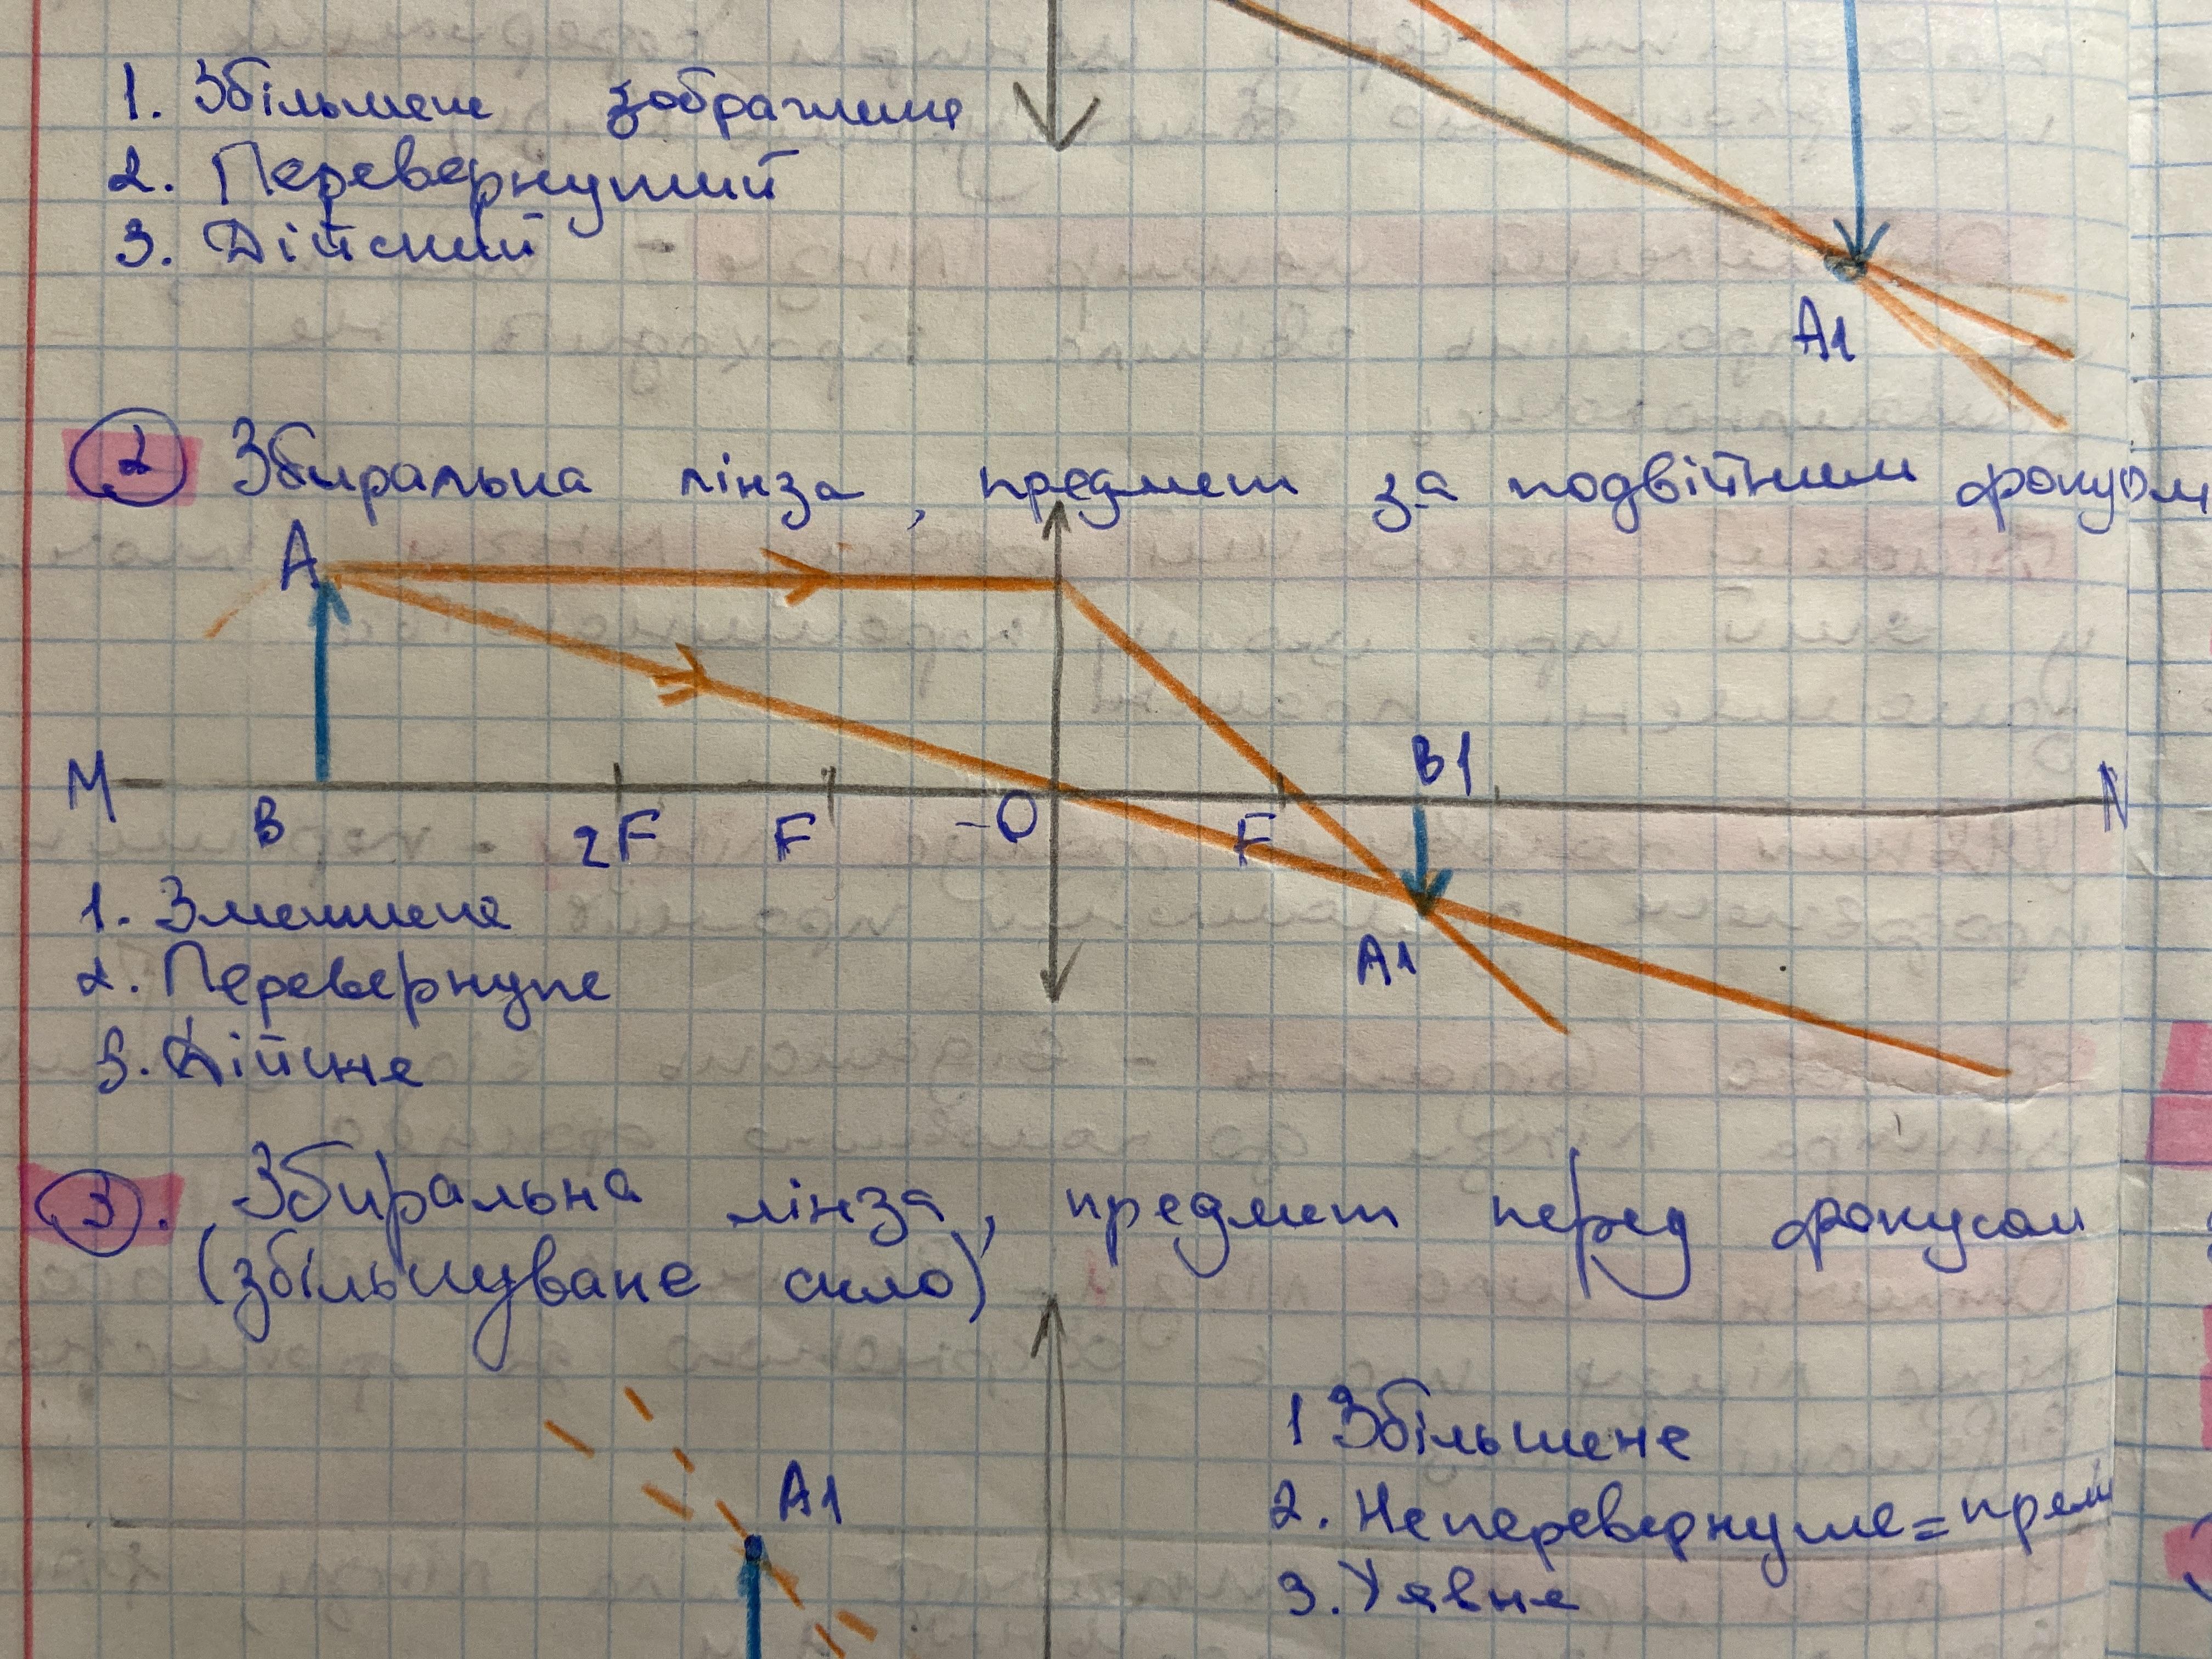 1. Збільшене зображення
2. Перевернутий
3. Дійсний
A1
2 Збиральна лінза, предмет за подвійним фокусом
A
M B 2F F O F B1 N
A1
1. Зменшене
2. Перевернуте
3. Дійсне
3. Збиральна лінза, предмет перед фокусом
(збільшуване скло)
A1
1 Збільшене
2. Неперевернуте = прям
3. Уявне